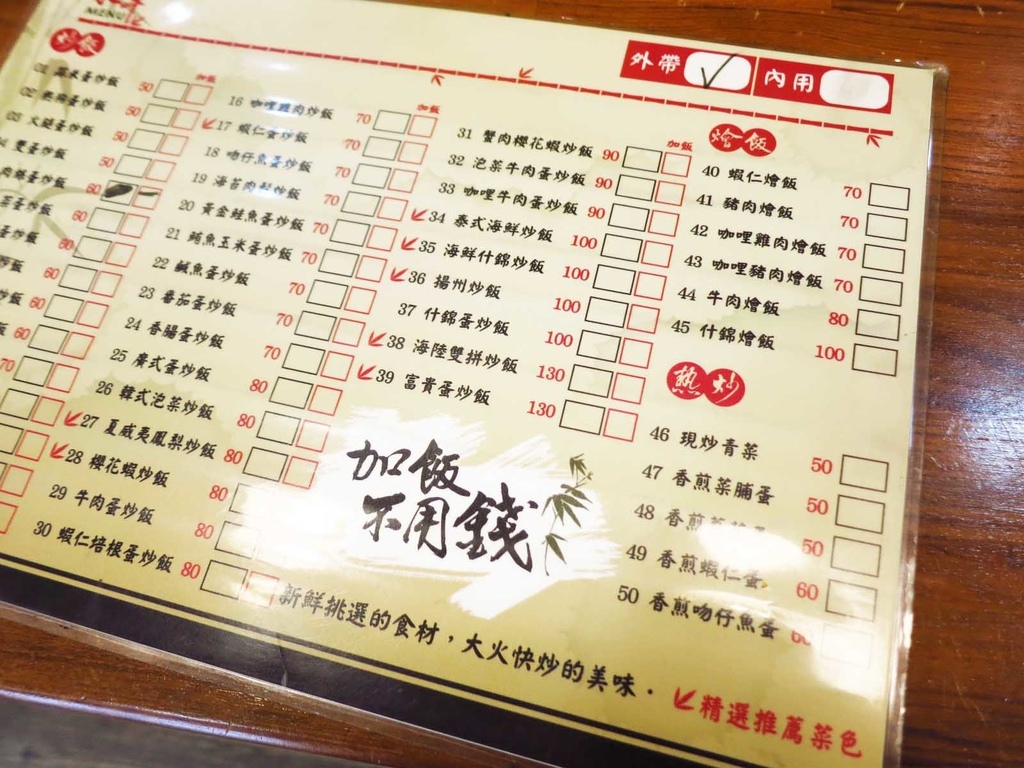 MENU
外帶 ✓ 內用
炒飯
加飯
01 蛋炒飯 50
02 蛋炒飯 50
03 火腿蛋炒飯 50
蛋炒飯 50
蛋炒飯 60
蛋炒飯 60
蛋炒飯 60
炒飯 60
炒飯 60
飯 60
70
加飯
16 咖哩雞肉炒飯 70
17 蝦仁蛋炒飯 70
18 吻仔魚蛋炒飯 70
19 海苔肉鬆炒飯 70
20 黃金鮭魚蛋炒飯 70
21 鮪魚玉米蛋炒飯 70
22 鹹魚蛋炒飯 70
23 番茄蛋炒飯 70
24 香腸蛋炒飯 70
25 廣式蛋炒飯 80
26 韓式泡菜炒飯 80
27 夏威夷鳳梨炒飯 80
28 櫻花蝦炒飯 80
29 牛肉蛋炒飯 80
30 蝦仁培根蛋炒飯 80
加飯
31 蟹肉櫻花蝦炒飯 90
32 泡菜牛肉蛋炒飯 90
33 咖哩牛肉蛋炒飯 90
34 泰式海鮮炒飯 100
35 海鮮什錦炒飯 100
36 揚州炒飯 100
37 什錦蛋炒飯 100
38 海陸雙拼炒飯 130
39 富貴蛋炒飯 130
燴飯
40 蝦仁燴飯 70
41 豬肉燴飯 70
42 咖哩雞肉燴飯 70
43 咖哩豬肉燴飯 70
44 牛肉燴飯 80
45 什錦燴飯 100
熱炒
46 現炒青菜 50
47 香煎菜脯蛋 50
48 香煎 蛋 50
49 香煎蝦仁蛋 60
50 香煎吻仔魚蛋 60
加飯
不用錢
新鮮挑選的食材，大火快炒的美味．
精選推薦菜色